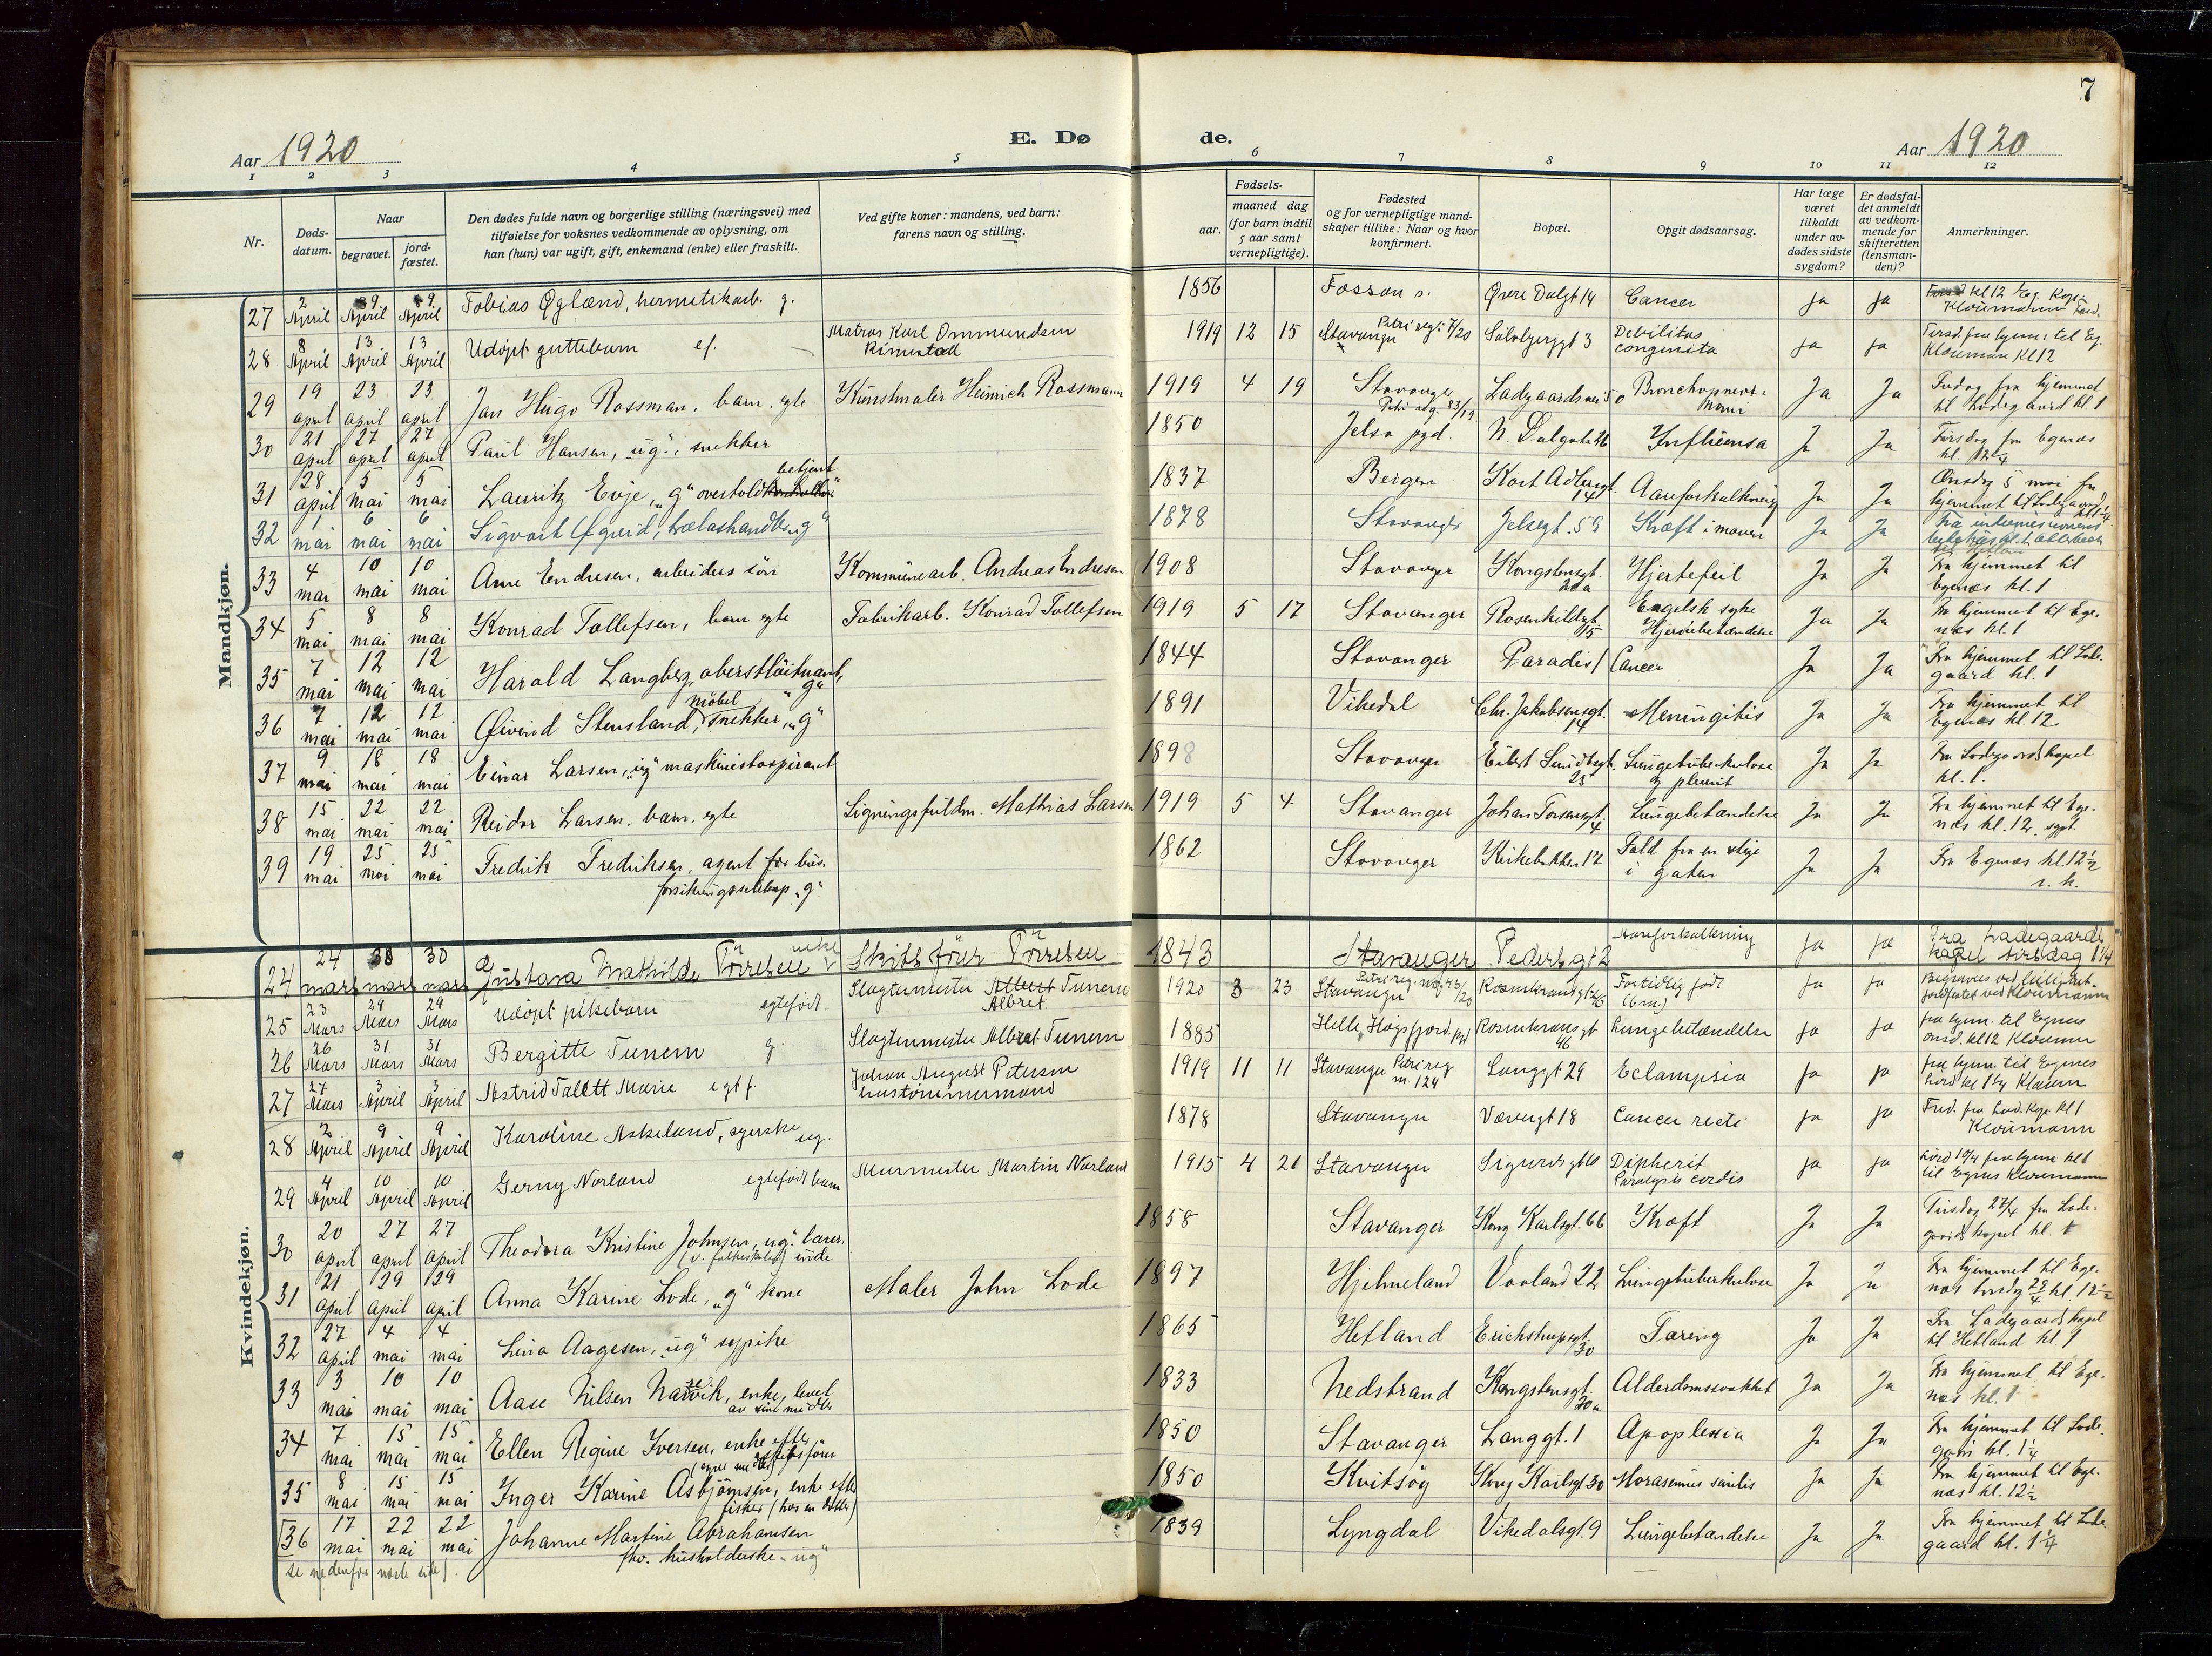 7
Aar 1920
E. Dø
de.
Aar 1920
1 2 3 4 5 6 7 8 9 10 11 12
Nr.
Døds-
datum.
Naar
begravet.
jord-
fæstet.
Den dødes fulde navn og borgerlige stilling (næringsvei) med
tilføielse for voksnes vedkommende av oplysning, om
han (hun) var ugift, gift, enkemand (enke) eller fraskilt.
Ved gifte koner: mandens, ved barn:
farens navn og stilling.
Fødsels-
aar.
maaned dag
(for barn indtil
5 aar samt
vernepligtige).
Fødested
og for vernepligtige mand-
skaper tillike: Naar og hvor
konfirmert.
Bopæl.
Opgit dødsaarsag.
Har læge
været
tilkaldt
under av-
dødes sidste
sygdom?
Er dødsfal-
det anmeldt
av vedkom-
mende for
skifteretten
(lensman-
den)?
Anmerkninger.
Mandkjøn.
27 2 April 9 April 9 April Tobias Øglænd, hermetikarb. g. 1856 Fossan Øvre Dalgt 14 Cancer ja ja kl 12
28 8 April 13 April 13 April Udöpt guttebarn ef. Matros Karl Ommundsen Rimestad 1919 12 15 Stavanger Petri reg. Sölvbergsgt 3 Debilitas congenita ja ja Tirsd. fra hjem: til Eg. Kl 12
29 19 april 23 april 23 april Jan Hugo Rossman, barn, egte Kunstmaler Heinrich Rossmann 1919 4 19 Stavanger Petri reg. 83/19 Ladgaardsvei 50 Bronchopneu- Ja Ja Fredag fra hjemmet til Lodegaard kl. 1
30 21 april 27 april 27 april Paul Hansen, "ug", snekker 1850 Jelsa pgd. N. Dalgate 36 Influensa Ja Ja Tirsdag fra Egenes
31 28 april 5 mai 5 mai Lauritz Evje, "g" overtoldbetjent 1837 Bergen Kort Adlersgt. 14 Aareforkalkning Ja Ja Onsdag 5 mai fra hjemmet til Lodegaard
32 1 mai 6 mai 6 mai Sigvart Øgreid, "g" 1878 Stavanger Jelsegt. 59 Kræft i maven Ja Ja
33 4 mai 10 mai 10 mai Arne Endresen, arbeiders sön Kommunearb. Andreas Endresen 1908 Stavanger Kongstensgt. 20a Hjertefeil Ja Ja Fra hjemmet til Egenæs kl. 1
34 5 mai 8 mai 8 mai Konrad Tollefsen, barn egte Fabrikarb. Konrad Tollefsen 1919 5 17 Stavanger Rosenkildegt. 15 Engelsk syke Hjernebetændelse Ja Ja Fra hjemmet til Egenæs kl. 1
35 7 mai 12 mai 12 mai Harald Langberg, oberstlöitnant, "g" 1844 Stavanger Paradis 1 Cancer Ja Ja Fra hjemmet til Lodegaard kl. 1
36 7 mai 12 mai 12 mai Øivind Stensland, möbelsnekker, "g" 1891 Vikedal Chr. Jakobsensgt. 14 Meningitis Ja Ja Fra hjemmet til Egenæs kl. 12
37 9 mai 18 mai 18 mai Einar Larsen, "ug" maskinistaspirant 1898 Stavanger Eilert Sundtsgt. 25 Lungetuberkulose og pleurit Ja Ja Fra Lodegaards kapel kl. 1.
38 15 mai 22 mai 22 mai Reidar Larsen, barn, egte Ligningsfuldm. Mathias Larsen 1919 5 4 Stavanger Johan Torsensgt. 4 Lungebetændelse Ja Ja Fra hjemmet til Egenæs kl. 12
39 19 mai 25 mai 25 mai Fredrik Fredriksen, agent for forsikringsselskap "g" 1862 Stavanger Kirkebakken 12 Faldt fra en stige i gaten Ja Ja Fra Egenæs kl. 12½
Kvindekjøn.
24 24 mars 30 mars 30 mars Gustava Mathilde Törresen enke Skibsförer Törresen 1843 Stavanger Pedersgt 2 Aareforkalkning ja ja Fra Ladegaards kapel tirsdag 1 1/4
25 23 Mars 29 Mars 29 Mars Udöpt pikebarn egtefödt Slagtermester Albret Tunem 1920 3 23 Stavanger Petri reg. Rosenkransgt 46 Fortidlig födt (6 m.) ja ja
26 26 Mars 31 Mars 31 Mars Bergitte Tunem g. Slagtermester Albret Tunem 1885 Helle Högsfjord Rosenkransgt 46 Lungebetændelse ja ja fra hjem. til Egenes onsd. kl 12
27 27 Mars 3 April 3 April Astrid Talett Marie egt f. Johan August Petersen hustömmermand 1919 11 11 Stavanger Petri reg nr. 124 Langgt 29 Eclampsia ja ja fra hjem til Egenes
28 2 April 9 April 9 April Karoline Askeland, syerske ug. 1878 Stavanger Vævergt 18 Cancer recti ja ja Fred. fra Lad. Kap. kl 1
29 4 April 10 April 10 April Gerny Norland egtefödt barn Murmester Martin Norland 1915 4 21 Stavanger Sigurdsgt Dipherit Paralysis cordis ja ja til Egenes
30 20 april 27 april 27 april Theodora Kristine Johnsen, "ug" lærerinde (v. folkeskolen) 1858 Stavanger Kong Karlsgt. 66 Kræft Ja Ja Tirsdag 27/4 fra Lodegaards kapel
31 21 april 29 april 29 april Anna Karine Lode, "g" kone Maler John Lode 1897 Hjelmeland Vaaland 22 Lungetuberkulose Ja Ja Fra hjemmet til Egenæs torsdag 29/4 kl. 12½
32 27 april 4 mai 4 mai Lina Aagesen, "ug" sypike 1865 Hetland Erichstrupsgt. 30 Tæring Ja Ja Fra Ladegaards kapel til Hetland kl. 1
33 3 mai 10 mai 10 mai Aase Nilsen Narvik, enke, levet av sine midler 1833 Nedstrand Kongstensgt. 30a Alderdomssvakhet Ja Ja Fra hjemmet til Egenæs kl. 1
34 7 mai 15 mai 15 mai Ellen Regine Iversen, enke efter skibsförer 1850 Stavanger Langgt. 1 Apoplexia Ja Ja Fra hjemmet til Lodegaard kl. 1¼
35 8 mai 15 mai 15 mai Inger Karine Asbjörnsen, enke efter fisker (hos en datter) 1850 Kvitsöy Kong Karlsgt. 30 Marasmus senilis Ja Ja Fra hjemmet til Egenæs kl. 12½
36 17 mai 22 mai 22 mai Johanne Martine Abrahamsen fhv. husholderske "ug" 1839 Lyngdal Vikedalsgt. 9 Lungebetændelse Ja Ja Fra hjemmet til Lodegaard kl. 1¼
se nedenfor næste side).